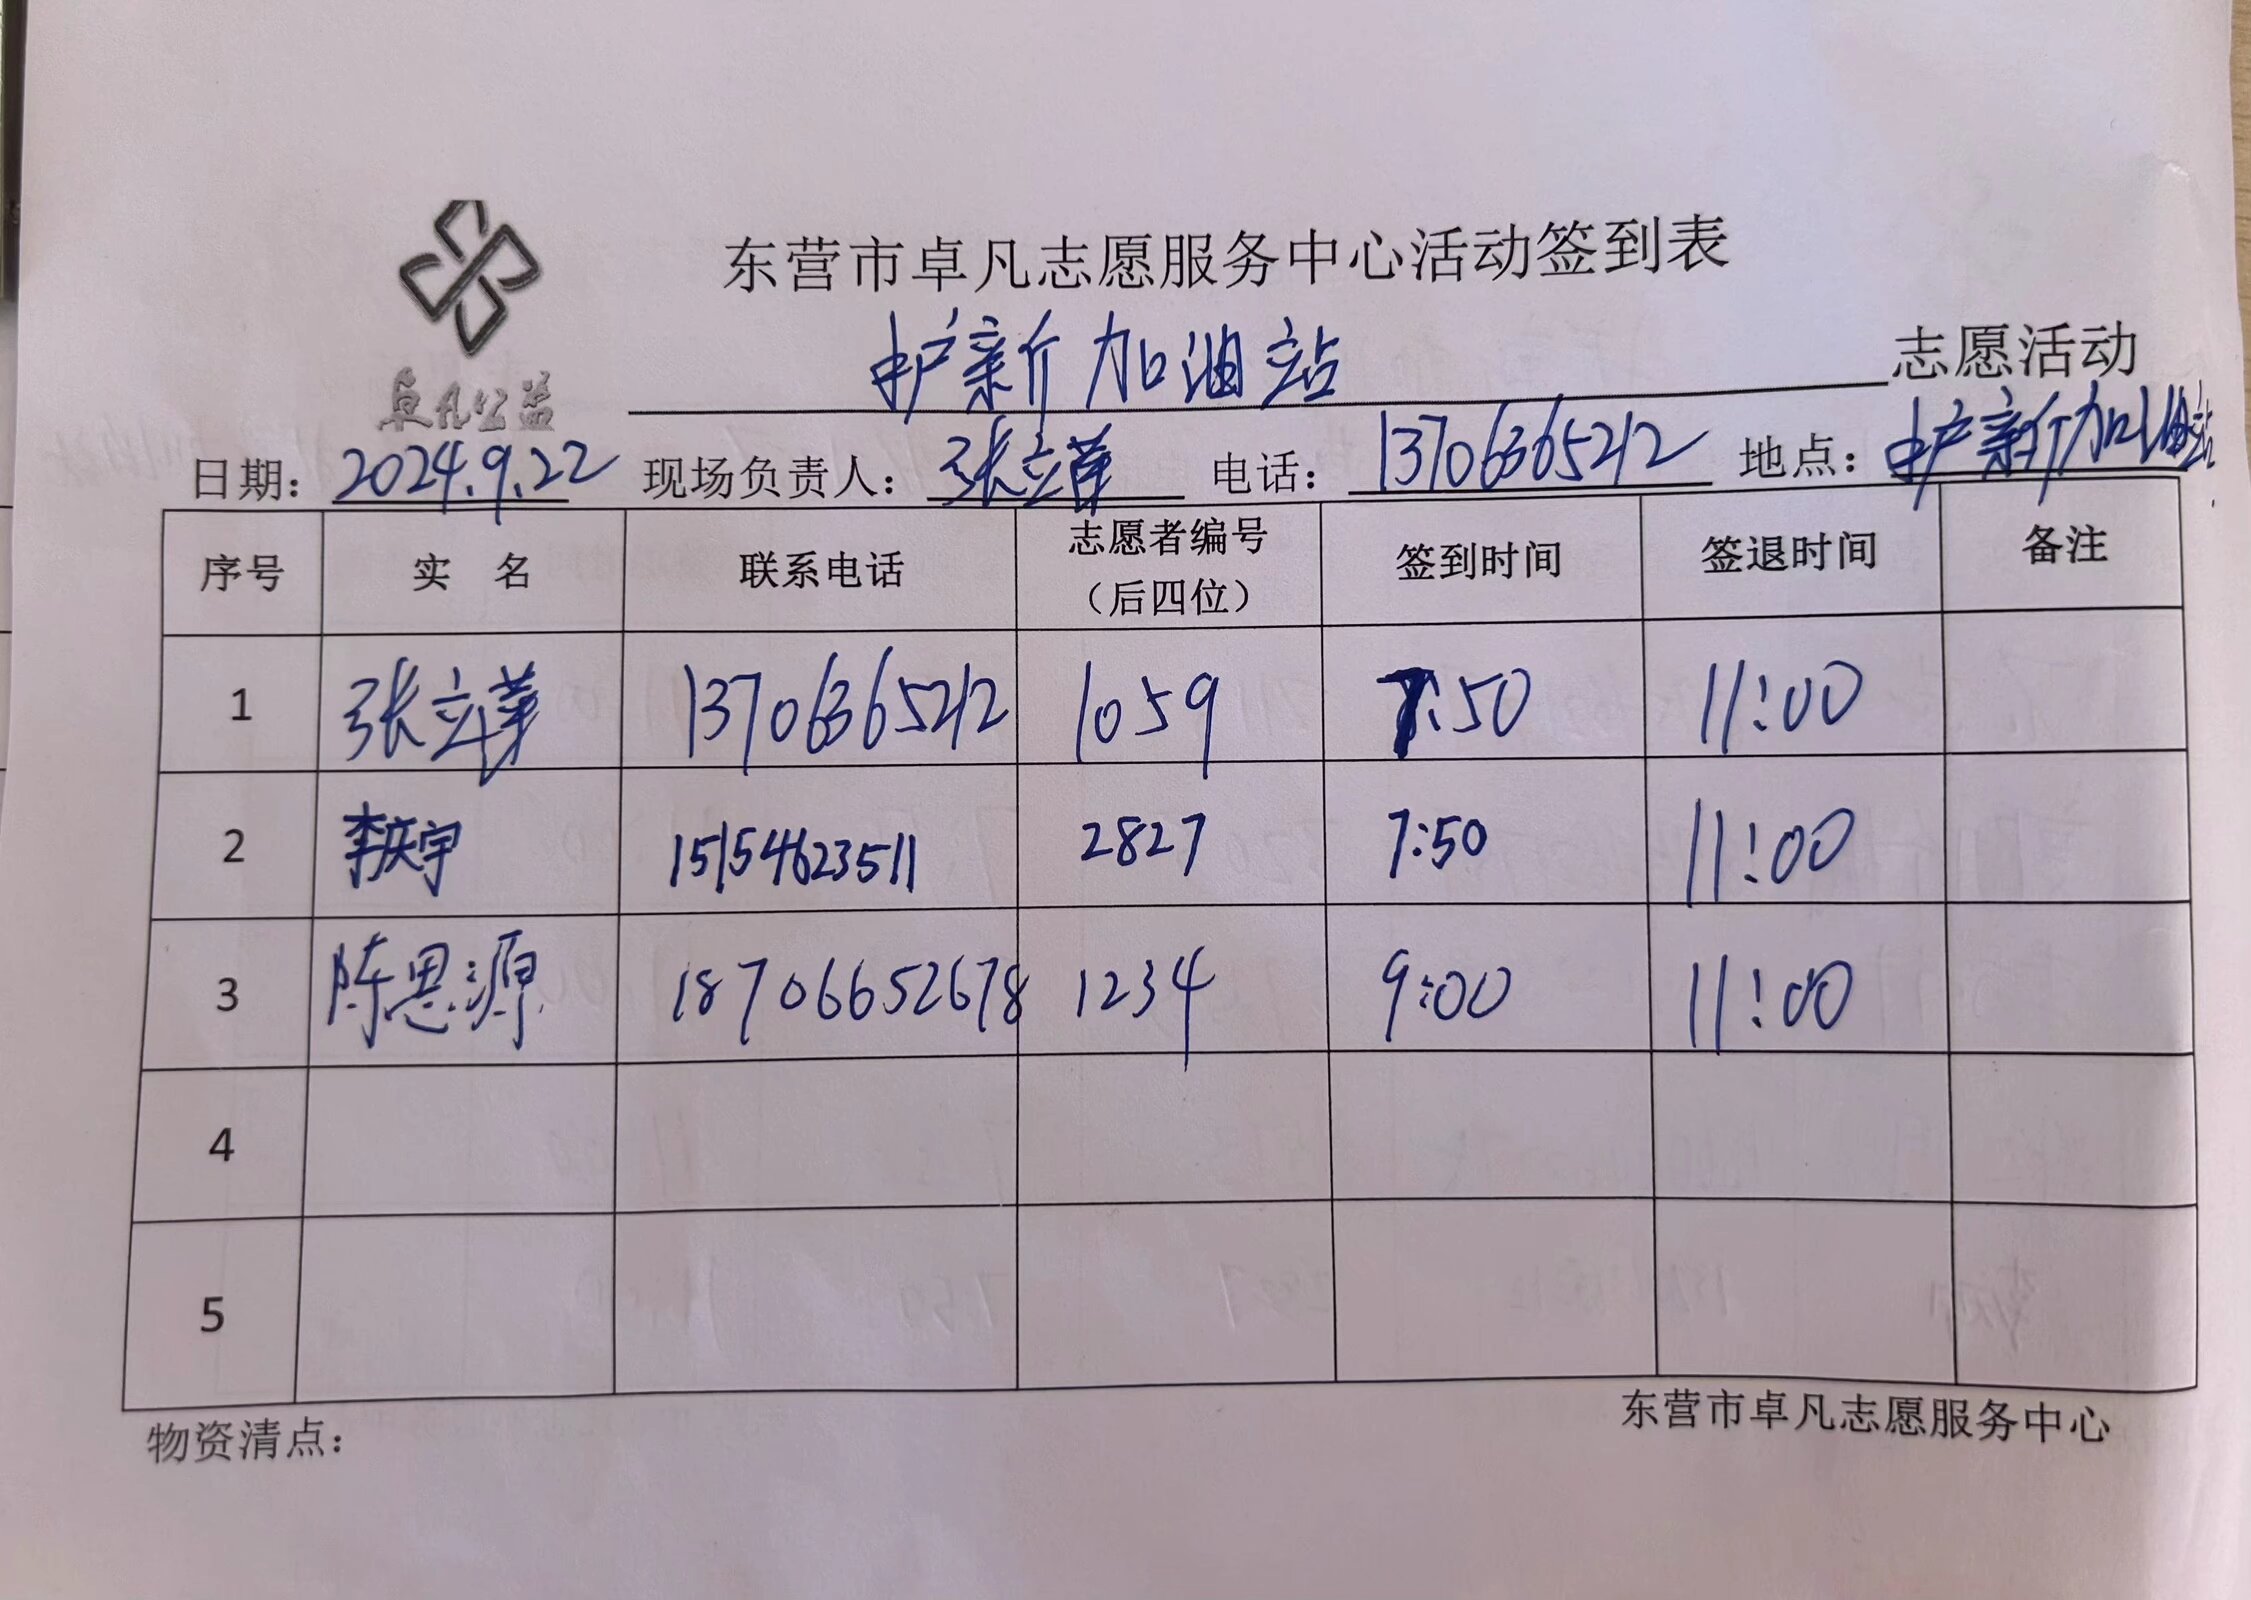 东营市卓凡志愿服务中心活动签到表
卓凡公益
护新加油站 志愿活动
日期： 2024.9.22 现场负责人： 张立 电话： 13706365212 地点： 护新加油站
序号 实 名 联系电话 志愿者编号（后四位） 签到时间 签退时间 备注
1 张立 13706365212 1059 7:50 11:00
2 李庆宇 15154623511 2827 7:50 11:00
3 陈思源 18706652678 1234 9:00 11:00
4
5
物资清点： 东营市卓凡志愿服务中心